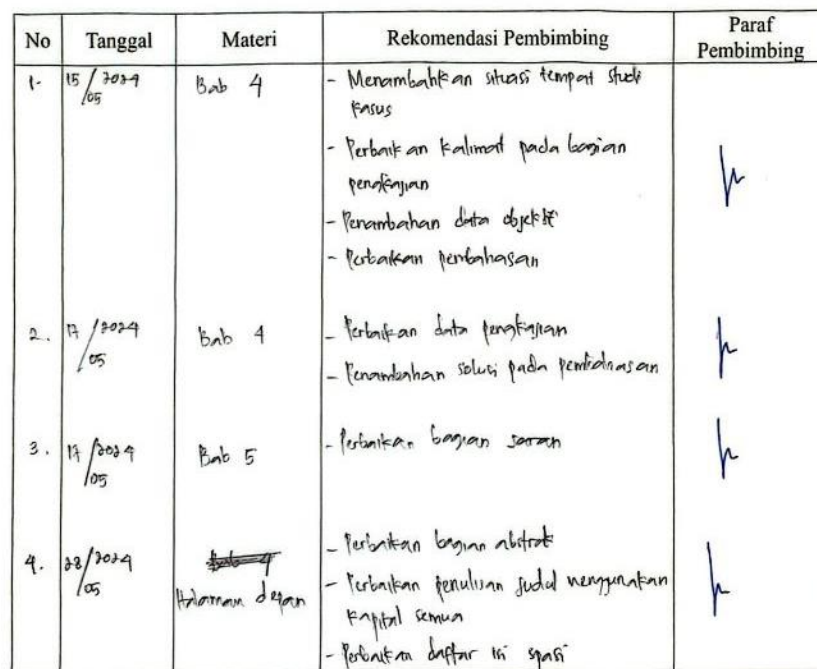 No Tanggal Materi Rekomendasi Pembimbing Paraf Pembimbing
1. 15/05 2024 Bab 4 - Menambahkan situasi tempat studi
kasus
- Perbaikan kalimat pada bagian
pengkajian
- Penambahan data objektif
- Perbaikan pembahasan
2. 17/05 2024 Bab 4 - Perbaikan data pengkajian
- Penambahan solusi pada pembahasan
3. 17/05 2024 Bab 5 - Perbaikan bagian saran
4. 28/05 2024 Bab 4 - Perbaikan bagian abstrak
Halaman depan - Perbaikan penulisan judul menggunakan
kapital semua
- Perbaikan daftar isi spasi